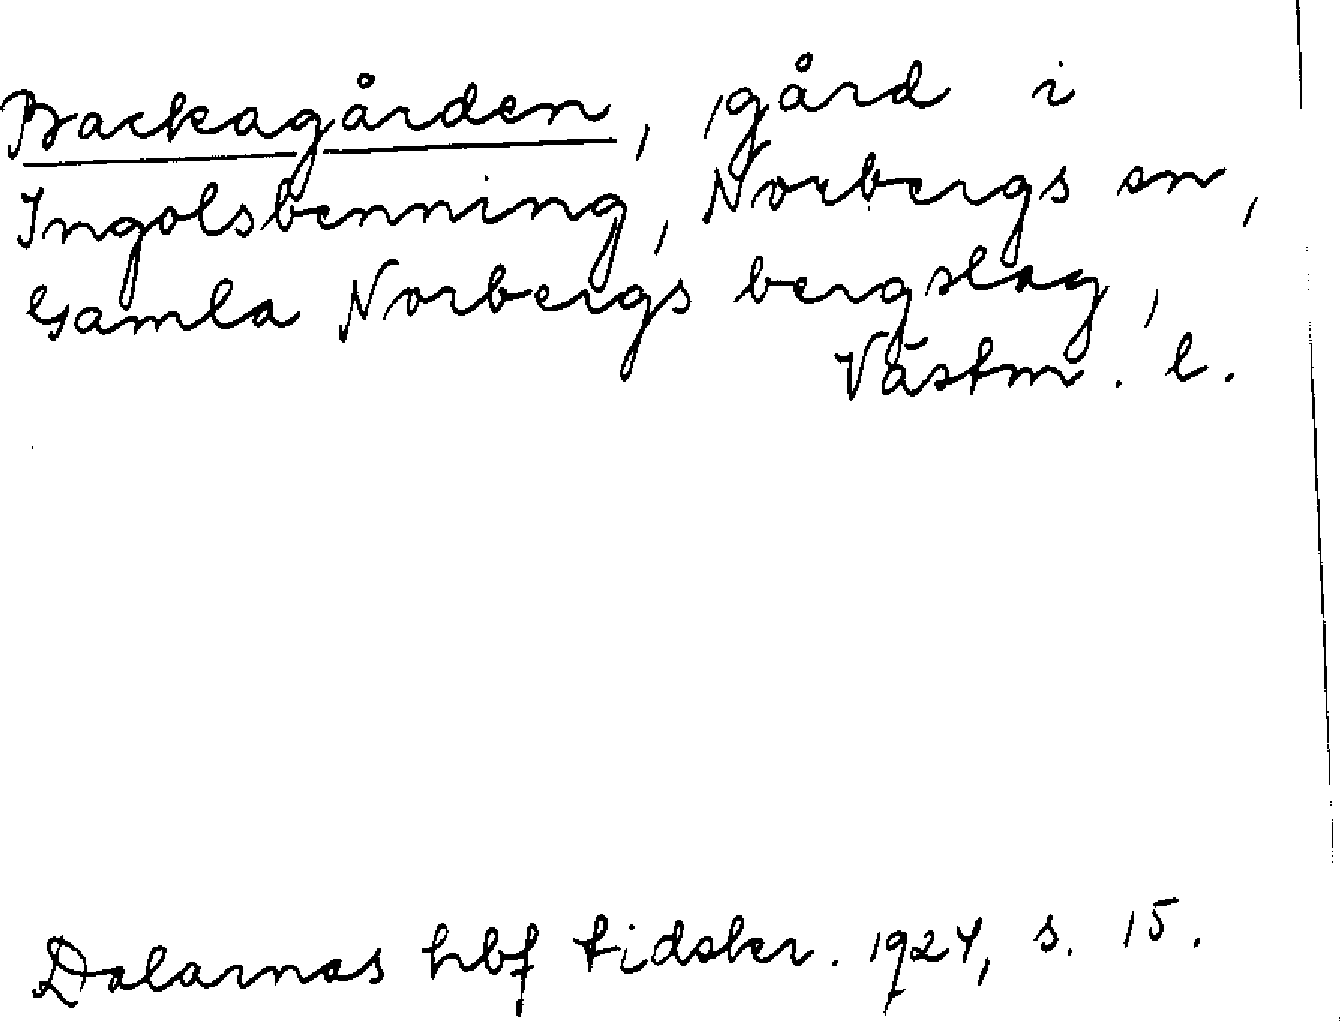 Backagården, gård i
Ingolsbenning, Norbergs sn,
Gamla Norbergs bergslag,
Västm. l.
Dalarnas hbf tidskr. 1924, s. 15.